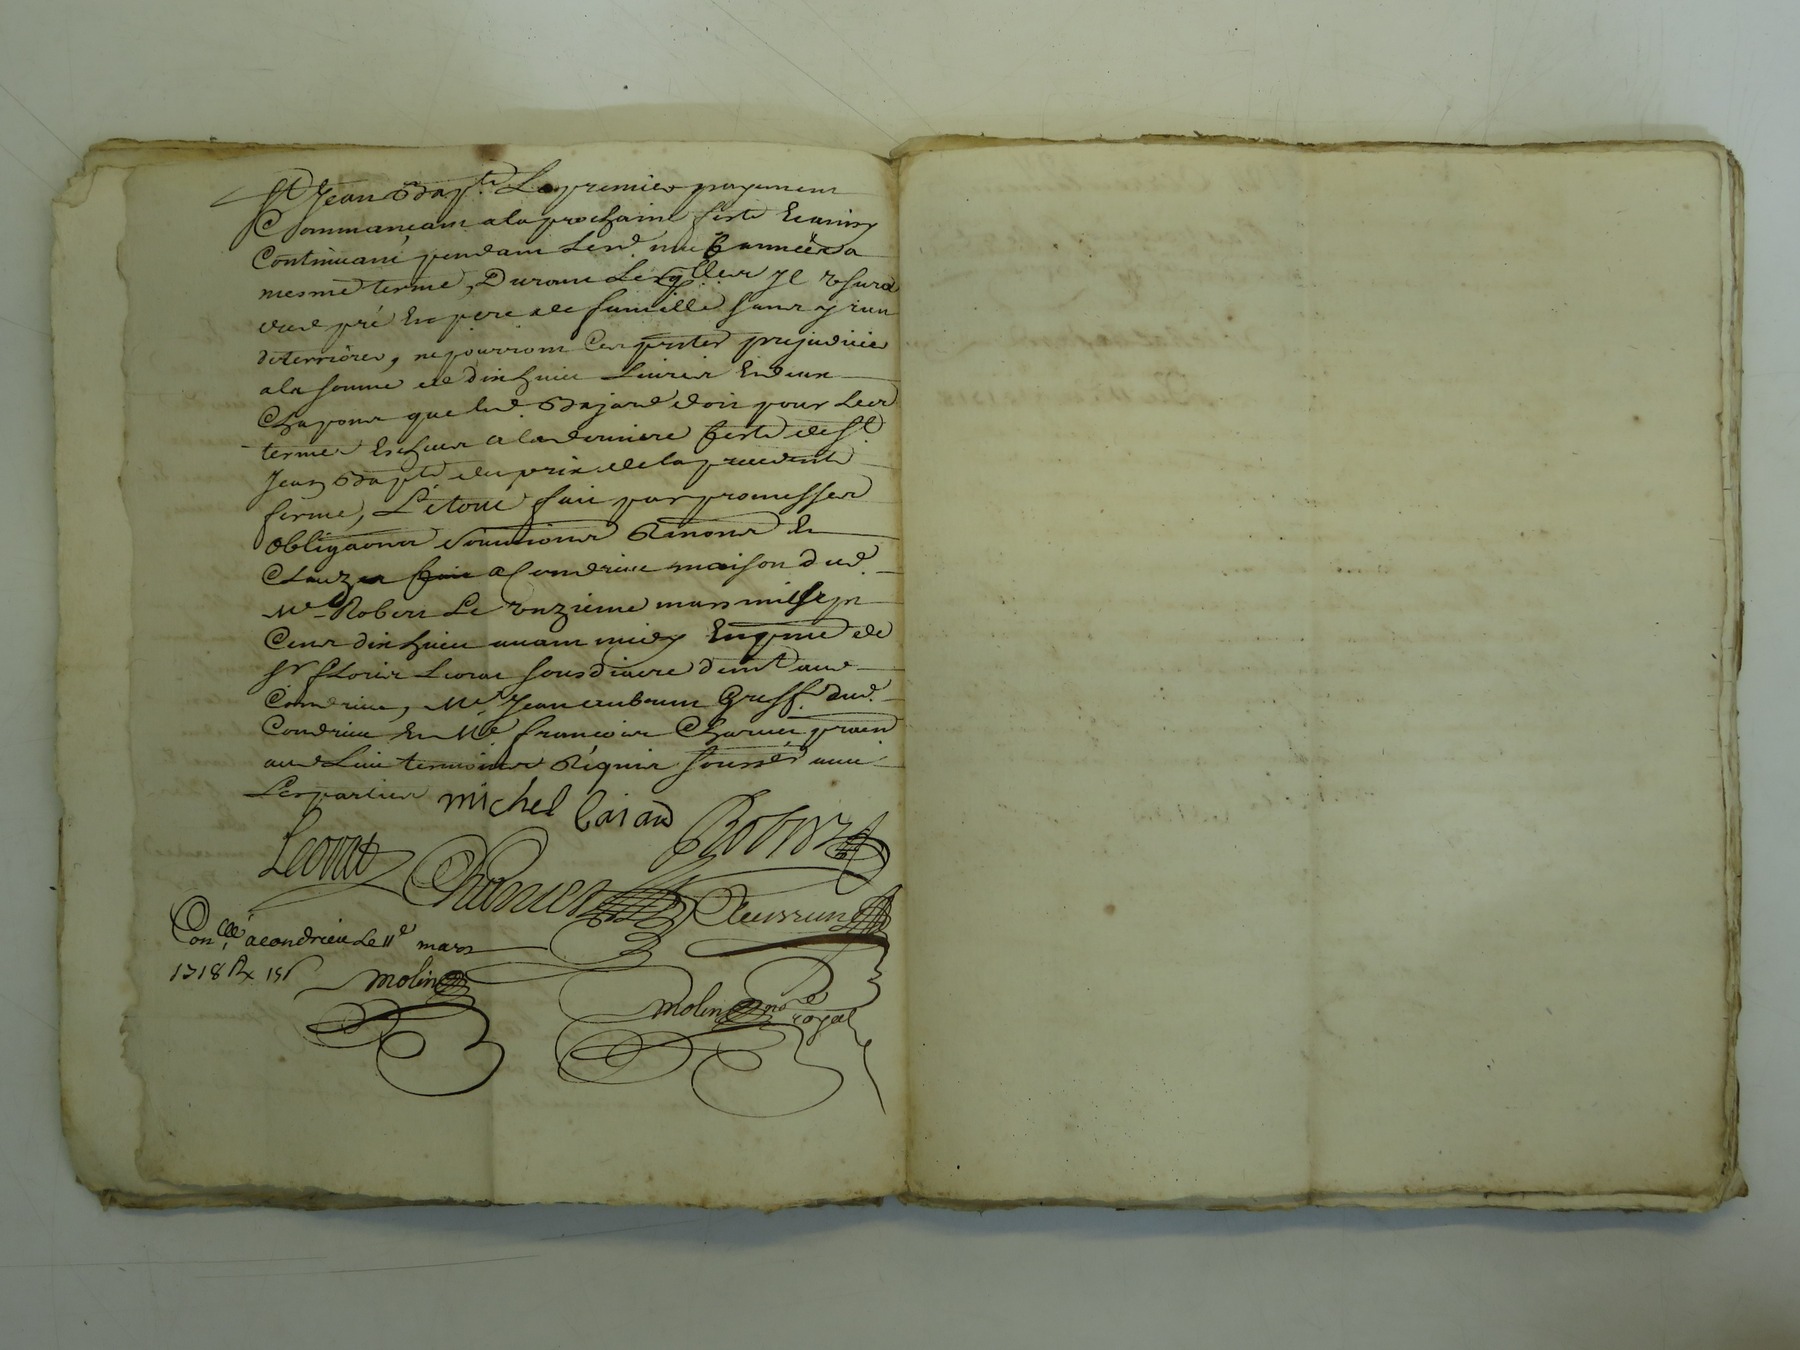 St Jean Bapte Le premier payement
Commancant a la prochaine feste Et ainsy
Continuant pendant Lesd. six années a
mesme terme, Durant Lesqlles yl usera
dud pré En pere de famille sans y rien
deterriorer, ne pourront Ces pntes prejudicier
a la somme de dix huict Livres Et deux
Chapons que led. Bajard doit pour Les
termes Escheus a la derniere feste de St
Jean Bapte du prix de la precedente
ferme, Le tout fait par promesses
obligaons soumions Renons Et
Clauzes fait a Condrieu maison dud.
Me Robert Le unzieme mars mil sept
Cens dix huict avant midy En pnce de
Sr Leorat sousdiacre demt aud
Condrieu, Me Jean Greff. dud.
Condrieu Et Me francois Charvet praen
aud Lieu temoins Requis soussés avec
Les parties michel baiard Robert
Leorat Charvet
Conllé a condrieu Le 11e mars
1718 Rx
molin
molin nore
royal